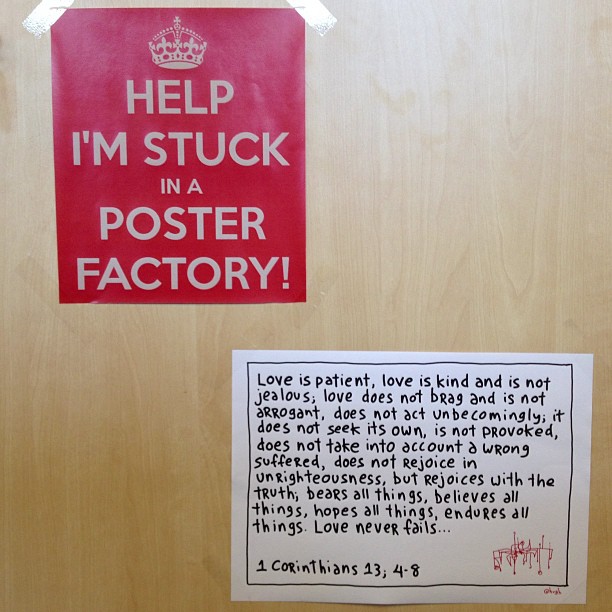 HELP
I'M STUCK
IN A
POSTER
FACTORY!
Love is patient, love is kind and is not
jealous; love does not brag and is not
arrogant, does not act unbecomingly; it
does not seek its own, is not provoked,
does not take into account a wrong
suffered, does not rejoice in
unrighteousness, but rejoices with the
truth; bears all things, believes all
things, hopes all things, endures all
things. Love never fails...
1 Corinthians 13; 4-8